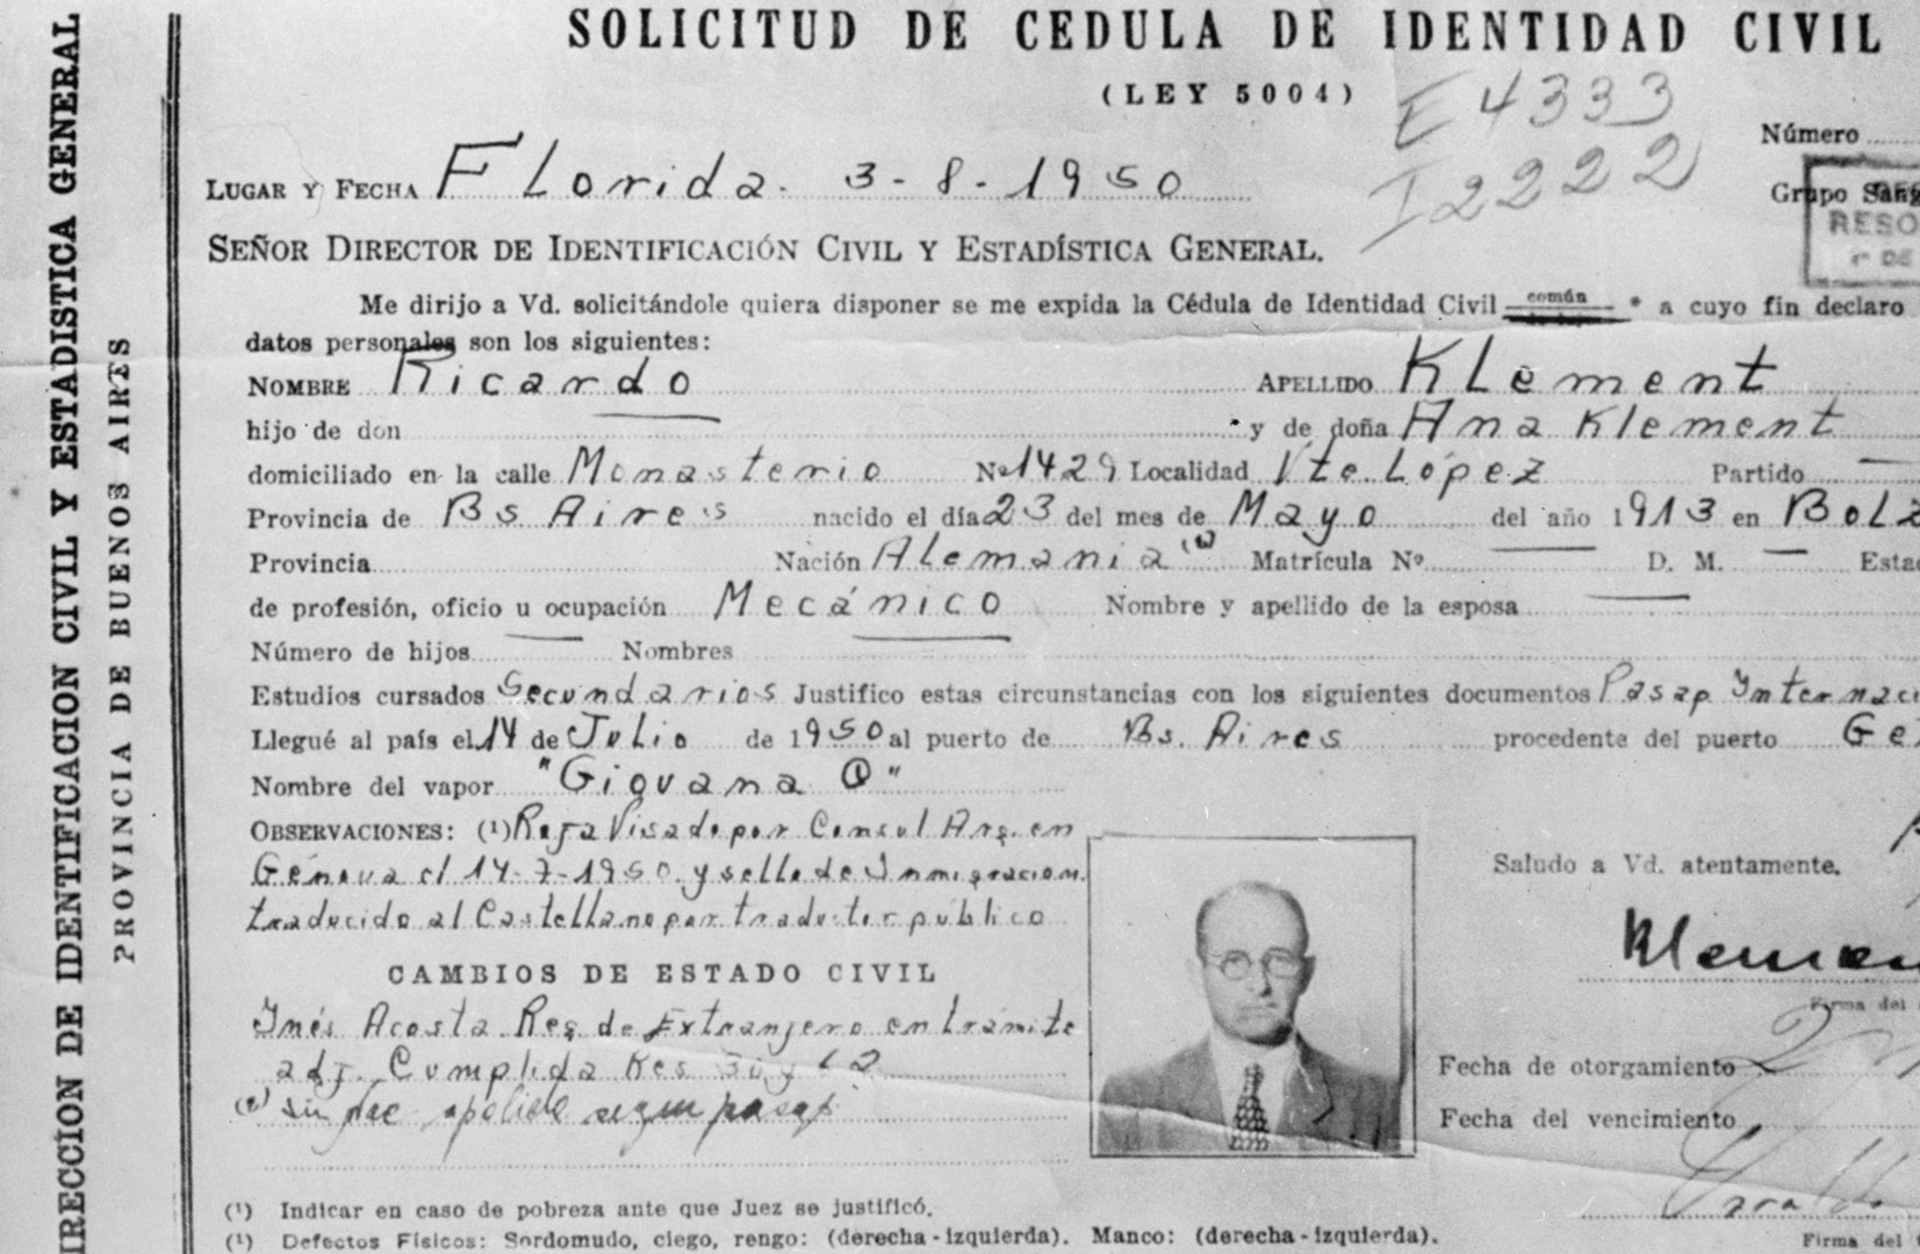 SOLICITUD DE CEDULA DE IDENTIDAD CIVIL
(LEY 5004)
E 4333
I 2222
Número
Grupo Sang
RESO
DE
LUGAR Y FECHA Florida. 3-8-1950
SEÑOR DIRECTOR DE IDENTIFICACIÓN CIVIL Y ESTADÍSTICA GENERAL.
Me dirijo a Vd. solicitándole quiera disponer se me expida la Cédula de Identidad Civil común * a cuyo fin declaro
datos personales son los siguientes:
NOMBRE Ricardo APELLIDO Klement
hijo de don y de doña Ana Klement
domiciliado en la calle Monasterio No 1429 Localidad Vte. López Partido
Provincia de Bs Aires nacido el día 23 del mes de Mayo del año 1913 en Bolz
Provincia Nación Alemania (1) Matrícula Nº D. M. Estad
de profesión, oficio u ocupación Mecánico Nombre y apellido de la esposa
Número de hijos Nombres
Estudios cursados Secundarios Justifico estas circunstancias con los siguientes documentos Pasap Internaci
Llegué al país el 14 de Julio de 1950 al puerto de Bs. Aires procedente del puerto Gé
Nombre del vapor "Giovana C"
OBSERVACIONES: (1) Visado por Consul Arg. en
Génova el 14-7-1950 y sello de Inmigracion.
traducido al Castellano por traductor público
CAMBIOS DE ESTADO CIVIL
Inés Acosta Reg. de Extranjero en trámite
adj. Cumplida Res
segun pasap
Saludo a Vd. atentamente.
Klemen
Firma del
Fecha de otorgamiento
Fecha del vencimiento
Firma del
(¹) Indicar en caso de pobreza ante que Juez se justificó.
(¹) Defectos Físicos: Sordomudo, ciego, rengo: (derecha-izquierda). Manco: (derecha-izquierda).
DIRECCION DE IDENTIFICACION CIVIL Y ESTADISTICA GENERAL
PROVINCIA DE BUENOS AIRES